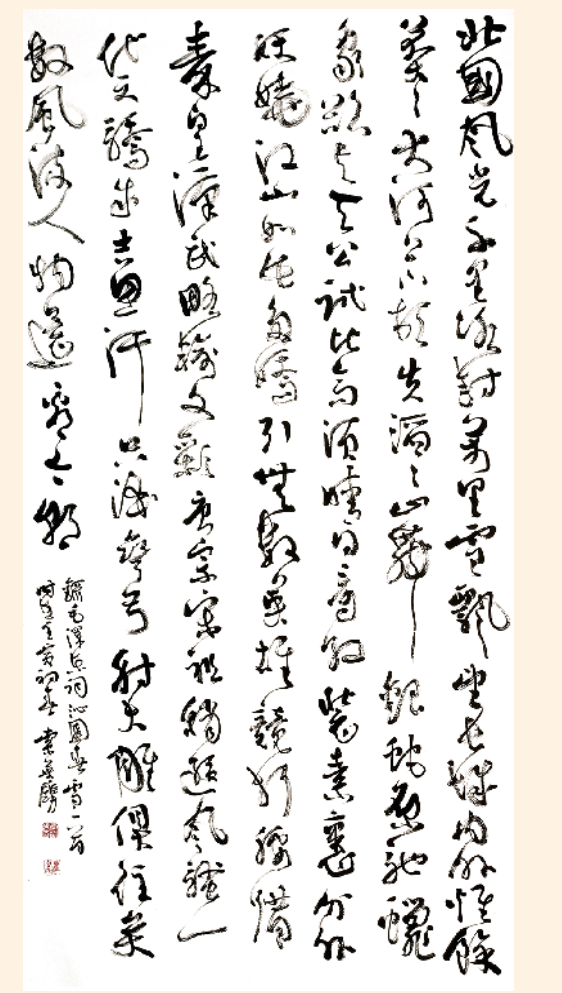 北國風光千里冰封萬里雪飄望長城內外惟餘
莽々大河上下頓失滔々山舞銀蛇原馳蠟
象欲與天公試比高須晴日看紅裝素裹分外
妖嬈江山如此多嬌引無數英雄競折腰惜
秦皇漢武略輸文采唐宗宋祖稍遜風騷一
代天驕成吉思汗只識彎弓射大雕俱往矣
數風流人物還看今朝
錄毛澤東詞沁園春雪一首
壬寅初春